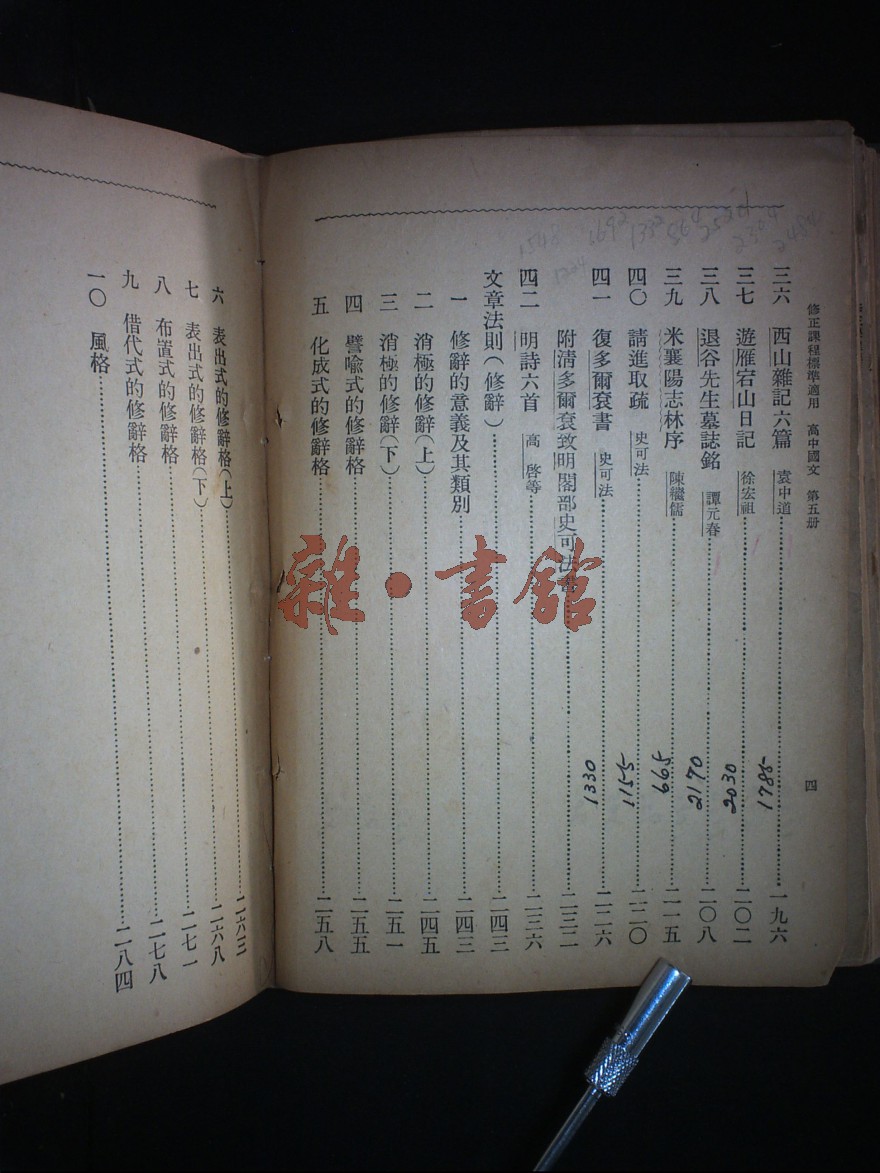 修正課程標準適用　高中國文　第五册
四
三六　西山雜記六篇　袁中道……一九六
1785
三七　遊雁宕山日記　徐宏祖……二〇二
2030
三八　退谷先生墓誌銘　譚元春……二〇八
2170
三九　米襄陽志林序　陳繼儒……二一五
665
四〇　請進取疏　史可法……二二〇
1155
四一　復多爾袞書　史可法……二二六
1330
附清多爾袞致明閣部史可法書……二三二
四二　明詩六首　高啓等……二三六
文章法則（修辭）……二四三
一　修辭的意義及其類別……二四三
二　消極的修辭（上）……二四五
三　消極的修辭（下）……二五一
四　譬喻式的修辭格……二五五
五　化成式的修辭格……二五八
六　表出式的修辭格（上）……二六三
七　表出式的修辭格（下）……二六八
八　布置式的修辭格……二七一
九　借代式的修辭格……二七八
一〇　風格……二八四
雜·書館